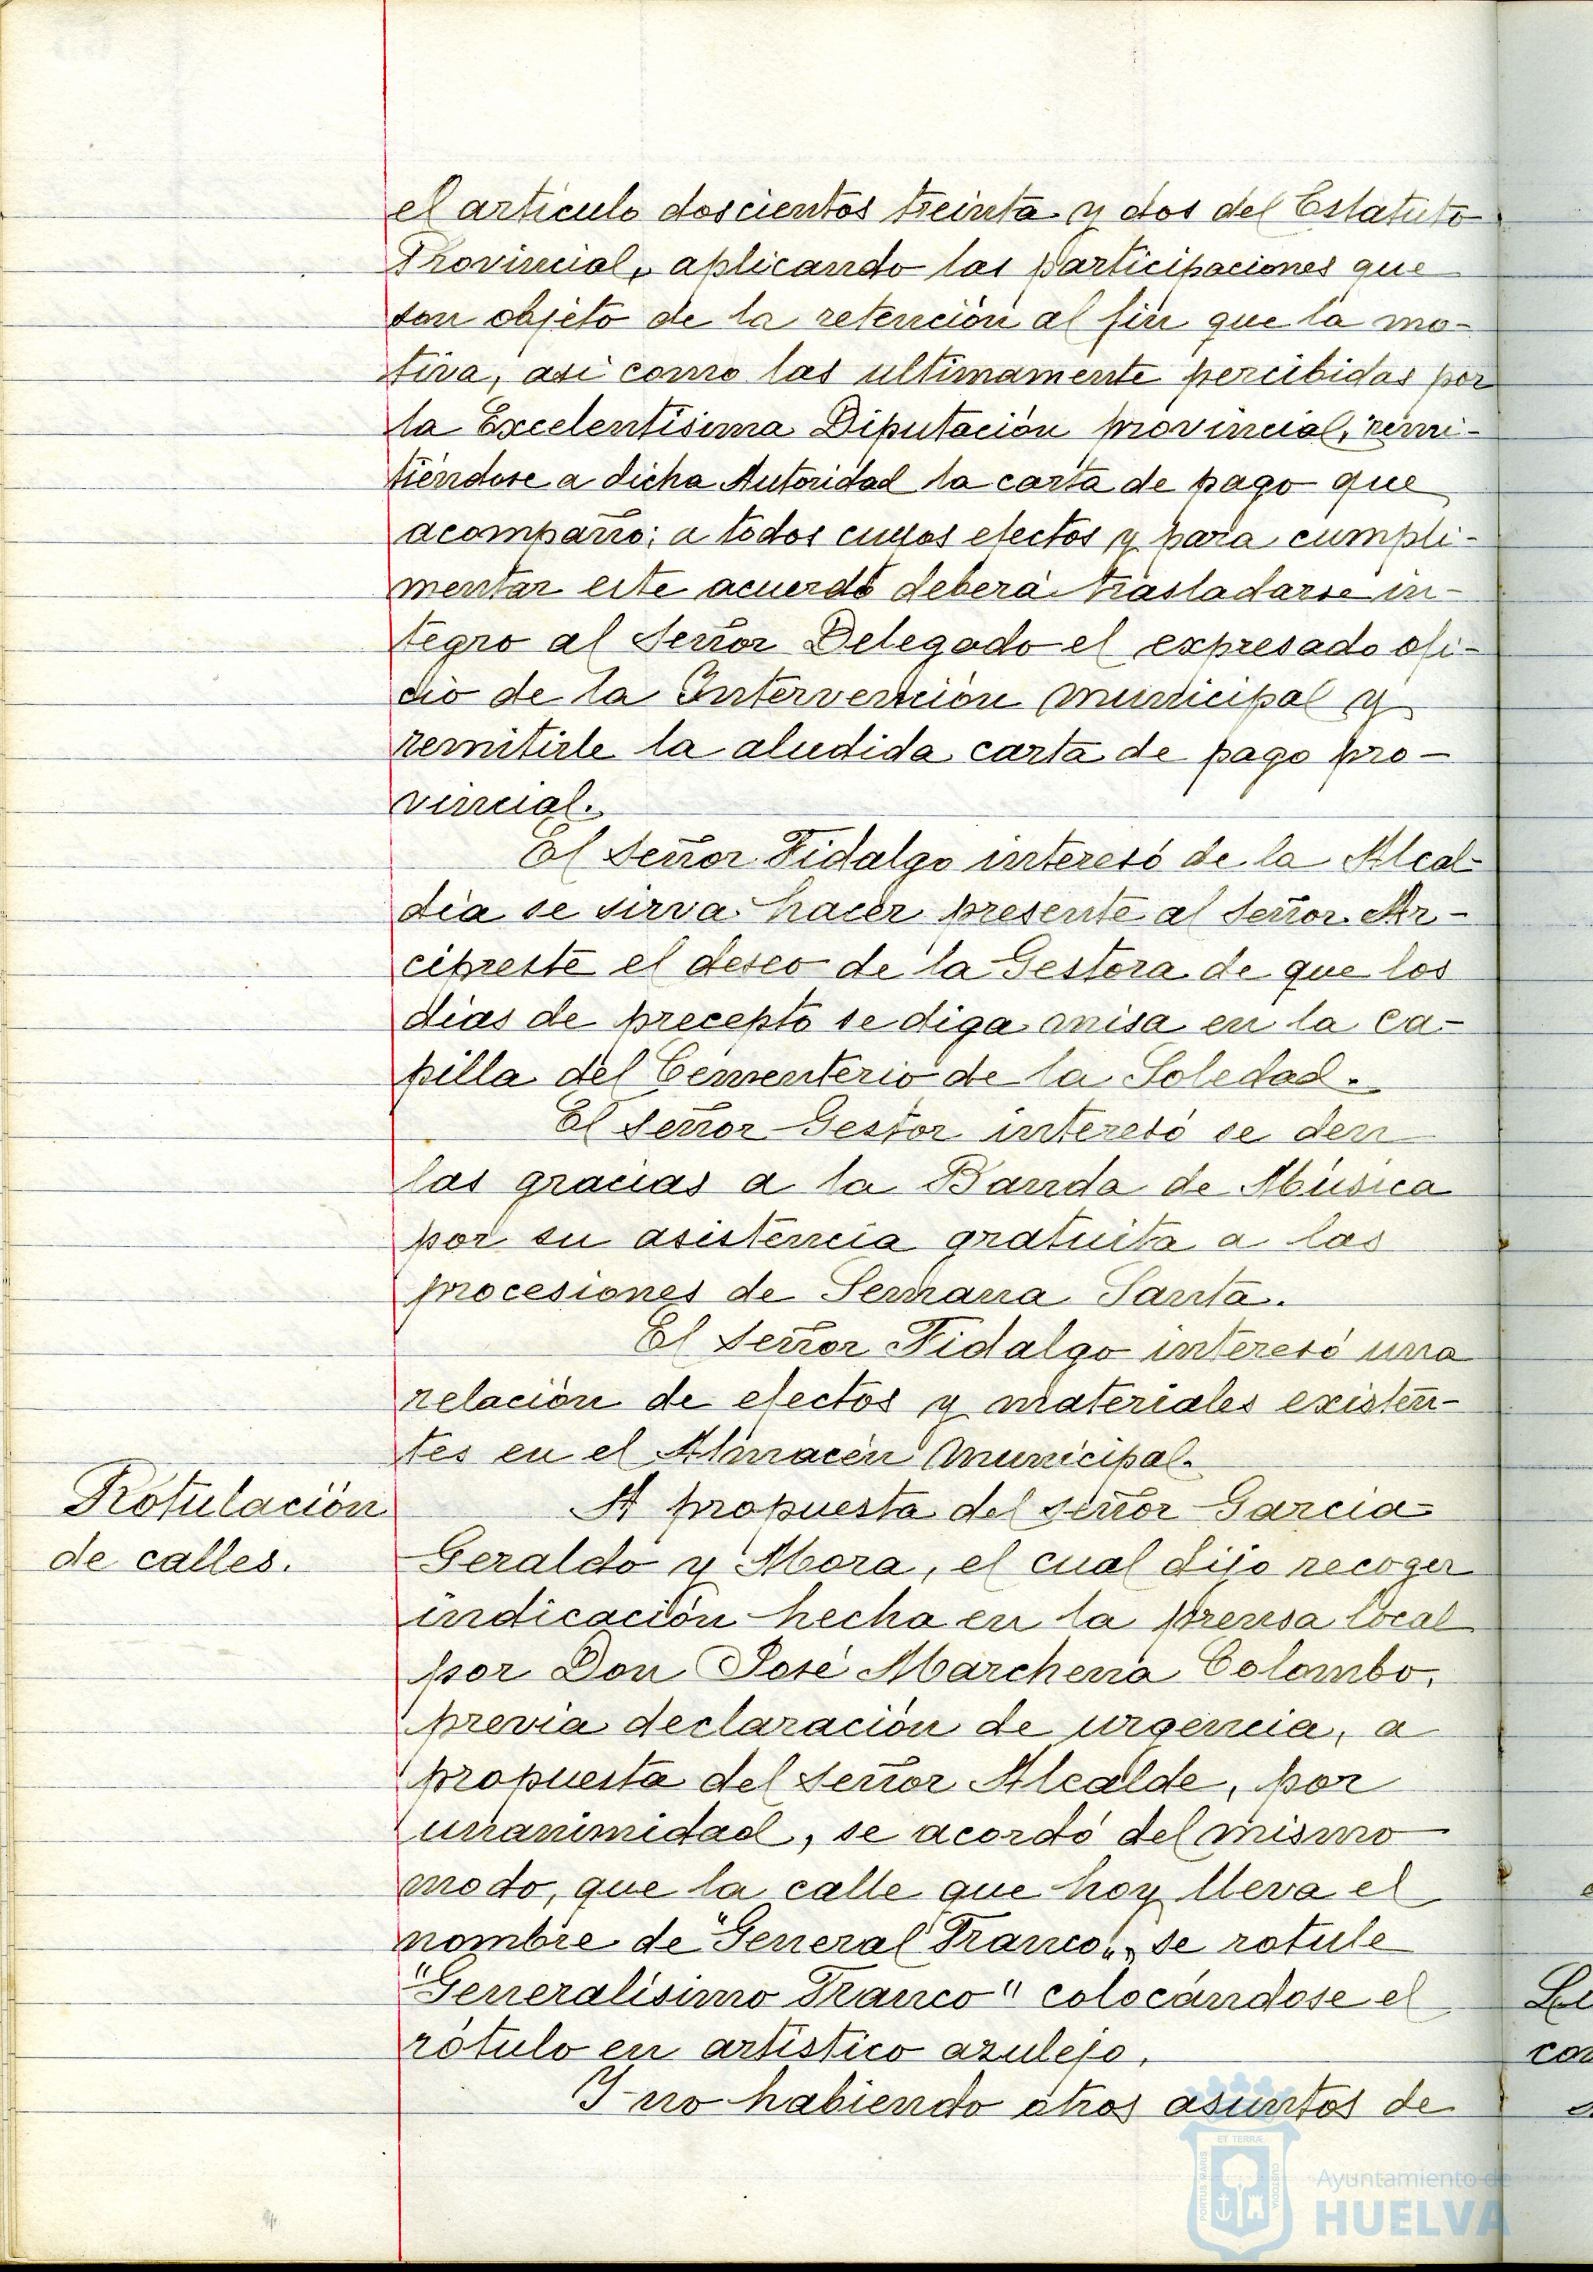 el artículo doscientos treinta y dos del Estatuto
Provincial, aplicando las participaciones que
son objeto de la retención al fin que la mo-
tiva, así como las ultimamente percibidas por
la Excelentísima Diputación provincial, remi-
tiéndose a dicha Autoridad la carta de pago que
acompaño; a todos cuyos efectos y para cumpli-
mentar este acuerdo deberá trasladarse ín-
tegro al Señor Delegado el expresado ofi-
cio de la Intervención municipal y
remitirle la aludida carta de pago pro-
vincial.
El Señor Fidalgo interesó de la Alcal-
día se sirva hacer presente al Señor Ar-
cipreste el deseo de la Gestora de que los
días de precepto se diga misa en la ca-
pilla del Cementerio de la Soledad.
El Señor Gestor interesó se den
las gracias a la Banda de Música
por su asistencia gratuita a las
procesiones de Semana Santa.
El Señor Fidalgo interesó una
relación de efectos y materiales existen-
tes en el Almacén Municipal.
Rotulación
de calles.
A propuesta del señor García
Geraldo y Mora, el cual dijo recoger
indicación hecha en la prensa local
por Don José Marchena Colombo,
previa declaración de urgencia, a
propuesta del Señor Alcalde, por
unanimidad, se acordó del mismo
modo, que la calle que hoy lleva el
nombre de "General Franco", se rotule
"Generalísimo Franco" colocándose el
rótulo en artístico azulejo.
Y no habiendo otros asuntos de
Ayuntamiento de
HUELVA